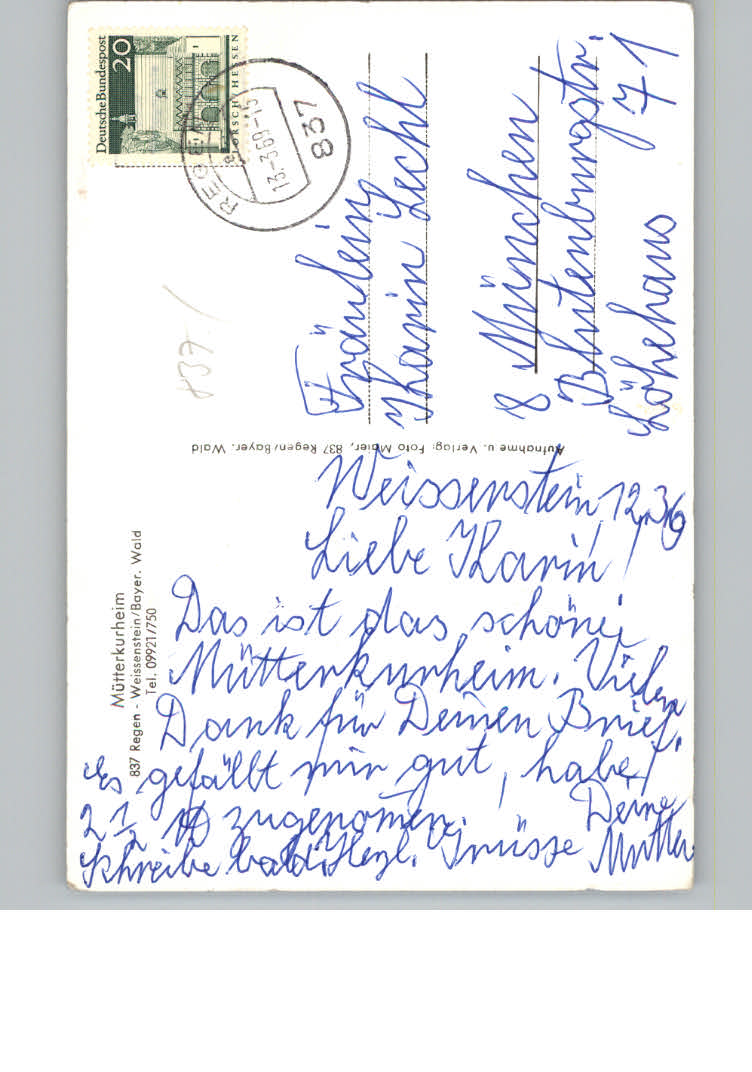 Mütterkurheim
837 Regen - Weissenstein/Bayer. Wald
Tel. 09921/750
Weissenstein, 12.3.69
Liebe Karin!
Das ist das schöne
Mütterkurheim. Vielen
Dank für Deinen Brief.
Es gefällt mir gut, habe
2 1/2 ℔ zugenomen.
Schreibe bald! Herzl. Grüsse
Deine
Mutter
Aufnahme u. Verlag: Foto Maier, 837 Regen/Bayer. Wald
Deutsche Bundespost
20
LORSCH/HESSEN
REGEN
13.-3.69.-15
837
837
Fräulein
Karin Lechl
8 München
Blutenburgstr.
71